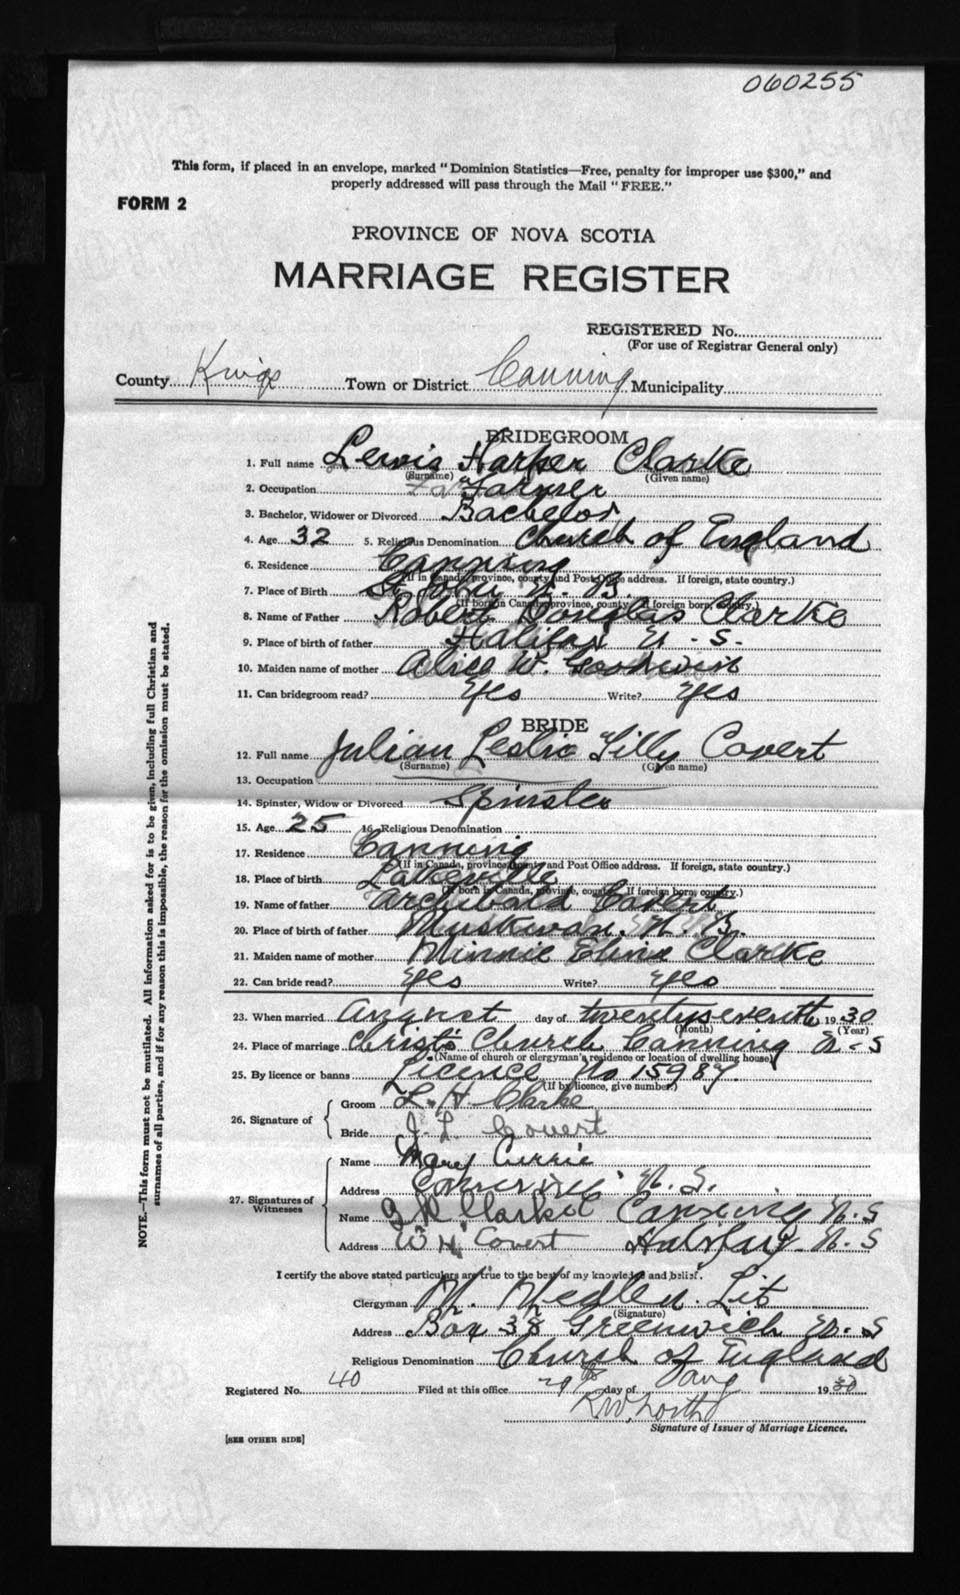 060255
This form, if placed in an envelope, marked "Dominion Statistics—Free, penalty for improper use $300," and
properly addressed will pass through the Mail "FREE."
FORM 2
PROVINCE OF NOVA SCOTIA
MARRIAGE REGISTER
REGISTERED No.
(For use of Registrar General only)
County Kings Town or District Canning Municipality
BRIDEGROOM
1. Full name Lewis Harper Clarke
(Surname) (Given name)
2. Occupation Farmer
3. Bachelor, Widower or Divorced Bachelor
4. Age 32 5. Religious Denomination Church of England
6. Residence Canning
(If in Canada, province, county and Post Office address. If foreign, state country.)
7. Place of Birth St. John N. B.
(If born in Canada, province, county. If foreign born, country.)
8. Name of Father Robert Douglas Clarke
9. Place of birth of father Halifax N. S.
10. Maiden name of mother Alice W. Goodwin
11. Can bridegroom read? Yes Write? Yes
BRIDE
12. Full name Julian Leslie Tilly Covert
(Surname) (Given name)
13. Occupation
14. Spinster, Widow or Divorced Spinster
15. Age 25 16. Religious Denomination
17. Residence Canning
(If in Canada, province, county and Post Office address. If foreign, state country.)
18. Place of birth Lakeville
(If born in Canada, province, county. If foreign born, country.)
19. Name of father Archibald Covert
20. Place of birth of father N. B.
21. Maiden name of mother Minnie Clarke
22. Can bride read? Yes Write? Yes
23. When married August day of twentyseventh 1930
(Month) (Year)
24. Place of marriage Christ Church Canning N-S
(Name of church or clergyman's residence or location of dwelling house)
25. By licence or banns Licence No 15987.
(If by licence, give number.)
26. Signature of
Groom L. H. Clarke
Bride J. L. Covert
27. Signatures of Witnesses
Name Mary Currie
Address N. S.
Name Canning N.S
Address W H Covert Halifax N.S
I certify the above stated particulars are true to the best of my knowledge and belief.
Clergyman
(Signature)
Address Box 38 Greenwich N. S
Religious Denomination Church of England
Registered No. 40 Filed at this office 29th day of Aug 1930
Signature of Issuer of Marriage Licence.
[SEE OTHER SIDE]
NOTE.—This form must not be mutilated. All information asked for is to be given, including full Christian and
surnames of all parties, and if for any reason this is impossible, the reason for the omission must be stated.